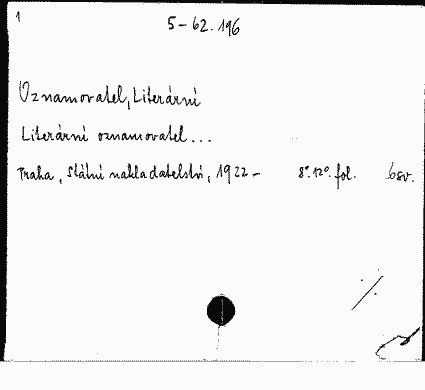 1
5-62.196
Oznamovatel, Literární
Literární oznamovatel...
Praha, Státní nakladatelství, 1922- 8°.12°. fol. 6sv.